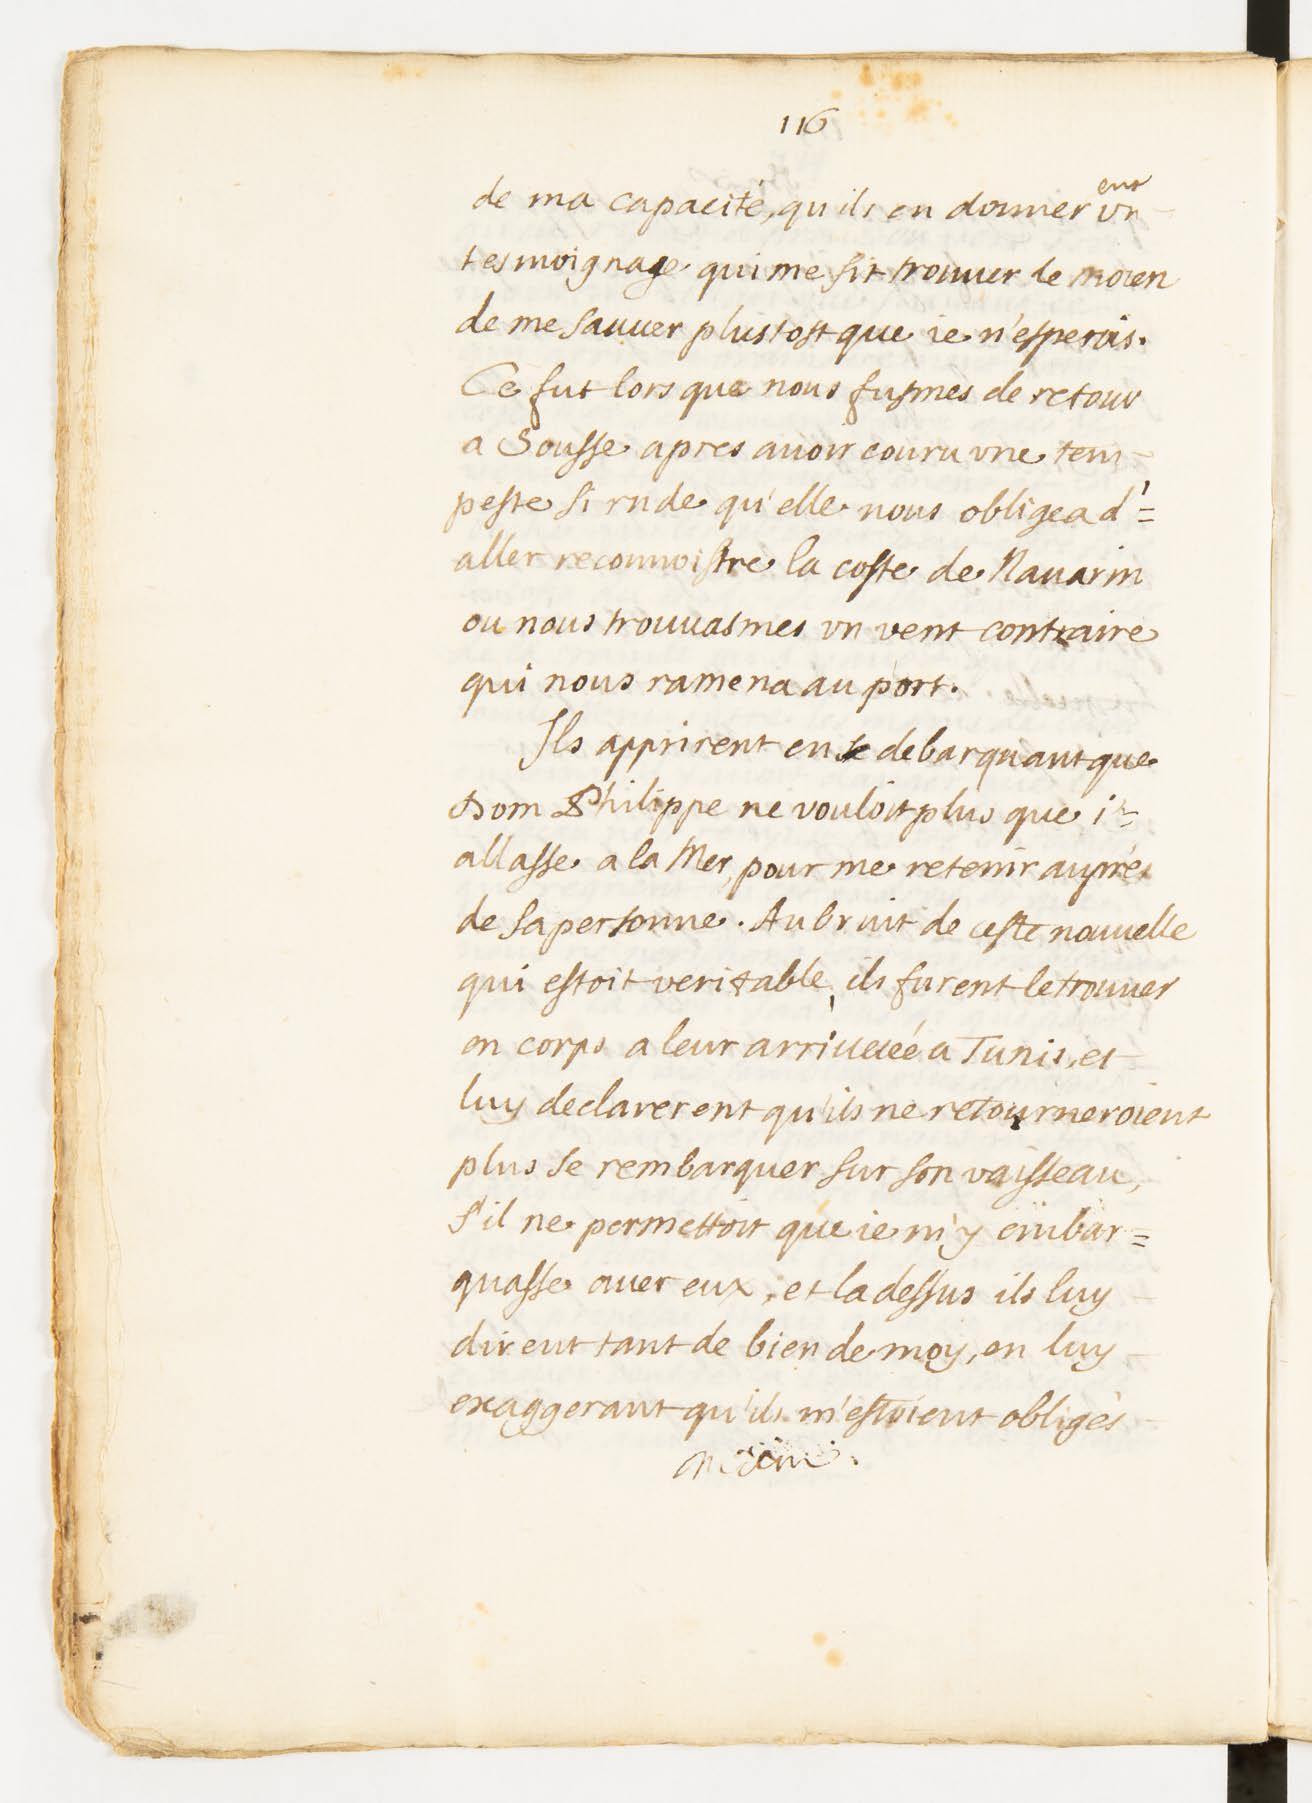 116
de ma capacité, qu'ils en donnerent vn
tesmoignage qui me fit trouuer le moien
de me sauuer plustost que ie n'esperois.
Ce fut lors que nous fusmes de retour
a Sousse apres auoir couru vne tem-
peste si rude qu'elle nous obligea d'=
aller reconnoistre la coste de Nauarin
ou nous trouuasmes vn vent contraire
qui nous ramena au port.
Ils apprirent en se debarquant que
Dom Philippe ne vouloit plus que ie
allasse a la Mer, pour me retenir auprés
de sa personne. Au bruit de ceste nouuelle
qui estoit veritable, ils furent le trouuer
en corps a leur arriueéé a Tunis, et
luy declarerent qu'ils ne retourneroient
plus se rembarquer sur son vaisseau,
s'il ne permettoit que ie m'y embar=
quasse auec eux, et la dessus ils luy
dirent tant de bien de moy, en luy
exaggerant qu'ils m'estoient obligés